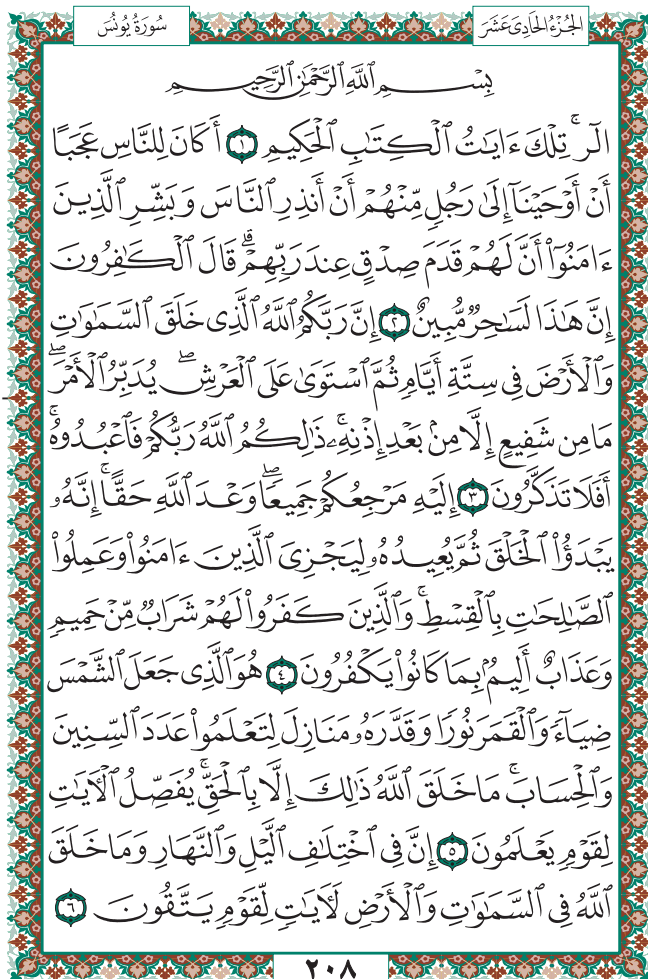 الجُزْءُ الحَادِىَ عَشَرَ
سُورَةُ يُونُسَ
بِسْمِ ٱللَّهِ ٱلرَّحْمَٰنِ ٱلرَّحِيمِ
الٓر ۚ تِلْكَ ءَايَٰتُ ٱلْكِتَٰبِ ٱلْحَكِيمِ ١ أَكَانَ لِلنَّاسِ عَجَبًا
أَنْ أَوْحَيْنَآ إِلَىٰ رَجُلٍ مِّنْهُمْ أَنْ أَنذِرِ ٱلنَّاسَ وَبَشِّرِ ٱلَّذِينَ
ءَامَنُوٓا۟ أَنَّ لَهُمْ قَدَمَ صِدْقٍ عِندَ رَبِّهِمْ ۗ قَالَ ٱلْكَٰفِرُونَ
إِنَّ هَٰذَا لَسَٰحِرٌ مُّبِينٌ ٢ إِنَّ رَبَّكُمُ ٱللَّهُ ٱلَّذِى خَلَقَ ٱلسَّمَٰوَٰتِ
وَٱلْأَرْضَ فِى سِتَّةِ أَيَّامٍ ثُمَّ ٱسْتَوَىٰ عَلَى ٱلْعَرْشِ ۖ يُدَبِّرُ ٱلْأَمْرَ ۖ
مَا مِن شَفِيعٍ إِلَّا مِنۢ بَعْدِ إِذْنِهِۦ ۚ ذَٰلِكُمُ ٱللَّهُ رَبُّكُمْ فَٱعْبُدُوهُ ۚ
أَفَلَا تَذَكَّرُونَ ٣ إِلَيْهِ مَرْجِعُكُمْ جَمِيعًا ۖ وَعْدَ ٱللَّهِ حَقًّا ۚ إِنَّهُۥ
يَبْدَؤُا۟ ٱلْخَلْقَ ثُمَّ يُعِيدُهُۥ لِيَجْزِىَ ٱلَّذِينَ ءَامَنُوا۟ وَعَمِلُوا۟
ٱلصَّٰلِحَٰتِ بِٱلْقِسْطِ ۚ وَٱلَّذِينَ كَفَرُوا۟ لَهُمْ شَرَابٌ مِّنْ حَمِيمٍ
وَعَذَابٌ أَلِيمٌۢ بِمَا كَانُوا۟ يَكْفُرُونَ ٤ هُوَ ٱلَّذِى جَعَلَ ٱلشَّمْسَ
ضِيَآءً وَٱلْقَمَرَ نُورًا وَقَدَّرَهُۥ مَنَازِلَ لِتَعْلَمُوا۟ عَدَدَ ٱلسِّنِينَ
وَٱلْحِسَابَ ۚ مَا خَلَقَ ٱللَّهُ ذَٰلِكَ إِلَّا بِٱلْحَقِّ ۚ يُفَصِّلُ ٱلْـَٔايَٰتِ
لِقَوْمٍ يَعْلَمُونَ ٥ إِنَّ فِى ٱخْتِلَٰفِ ٱلَّيْلِ وَٱلنَّهَارِ وَمَا خَلَقَ
ٱللَّهُ فِى ٱلسَّمَٰوَٰتِ وَٱلْأَرْضِ لَءَايَٰتٍ لِّقَوْمٍ يَتَّقُونَ ٦
٢٠٨